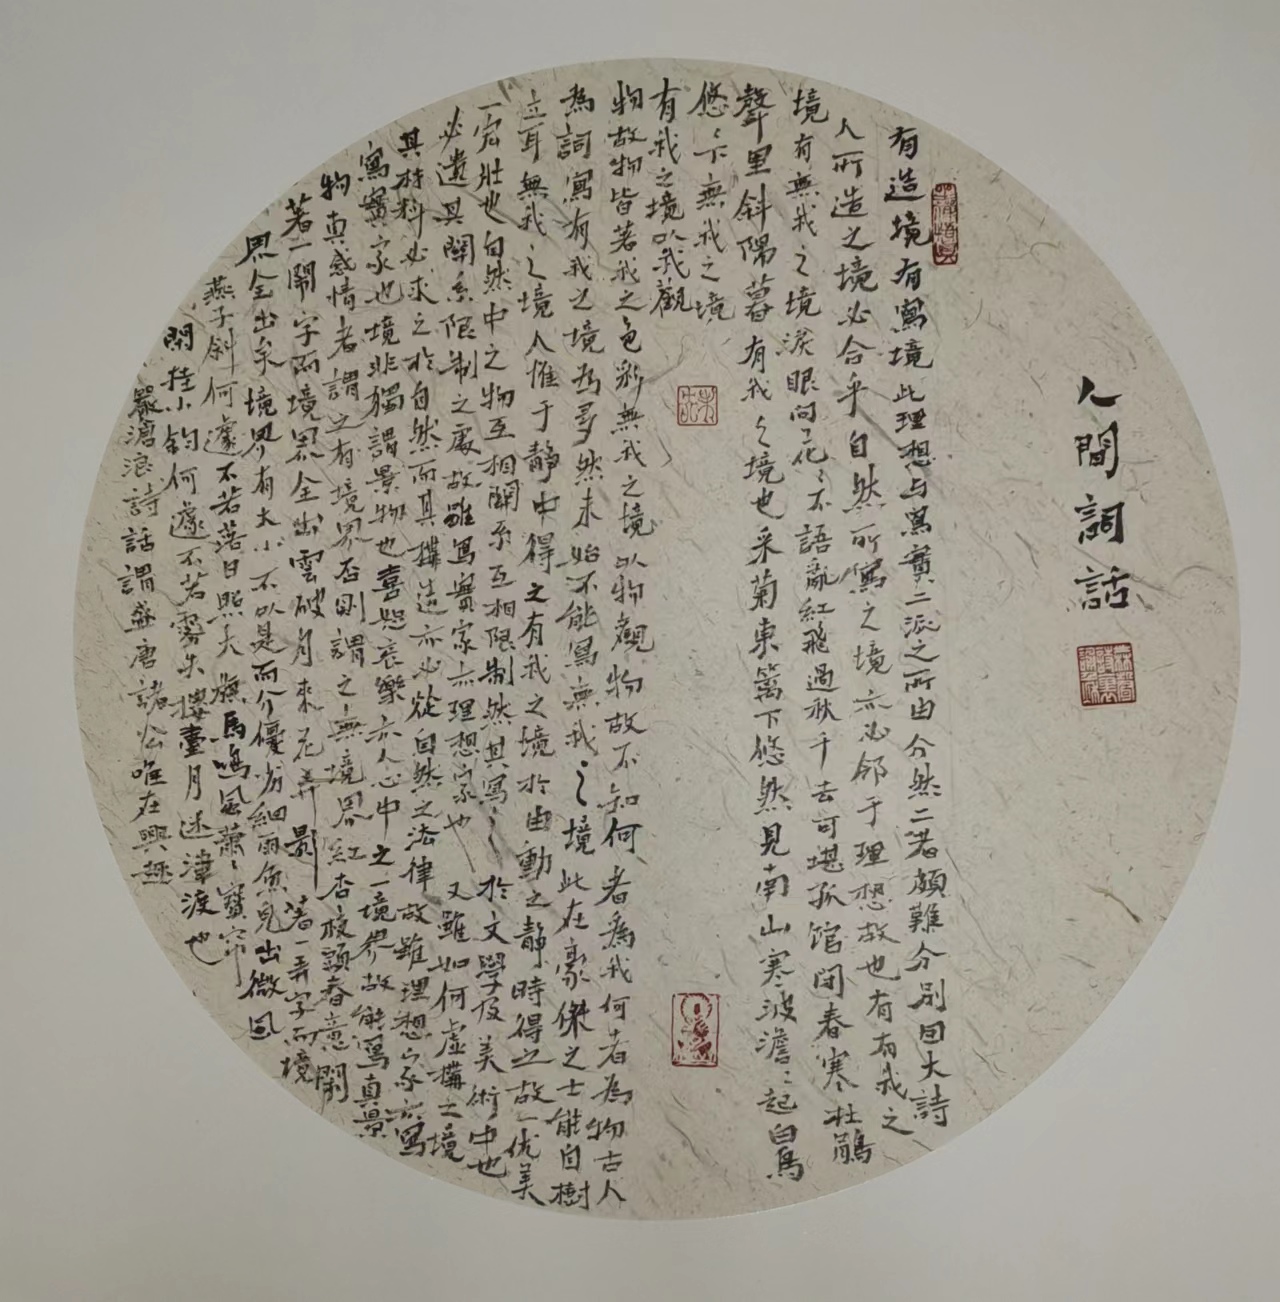 人間詞話
有造境有寫境此理想与寫實二派之所由分然二者頗難分别因大詩
人所造之境必合乎自然所寫之境亦必邻于理想故也有有我之
境有無我之境淚眼問花〻不語亂紅飛過秋千去可堪孤馆闭春寒杜鵑
聲里斜陽暮有我之境也采菊東篱下悠然見南山寒波澹〻起白鳥
悠〻下無我之境
有我之境以我觀
物故物皆著我之色彩無我之境以物觀物故不知何者為我何者為物古人
為詞寫有我之境为多然未始不能寫無我之境此在豪傑之士能自樹
立耳無我之境人惟于静中得之有我之境於由動之静時得之故一优美
一宏壮也自然中之物互相關系互相限制然其寫之於文學及美術中也
必遺其關系限制之處故雖寫實家亦理想家也又雖如何虛構之境
其材料必求之於自然而其構造亦必從自然之法律故雖理想家亦寫
實家也境非獨謂景物也喜怒哀樂亦人心中之一境界故能寫真景
物真感情者謂之有境界否則謂之無境界紅杏枝頭春意鬧
著一鬧字而境界全出雲破月來花弄影著一弄字而境
界全出矣境界有大小不以是而分優劣細雨魚兒出微風
燕子斜何遽不若落日照大旗馬鳴風蕭〻寳帘
閑挂小鈎何遽不若霧失樓臺月迷津渡也
嚴滄浪詩話謂盛唐諸公唯在興趣